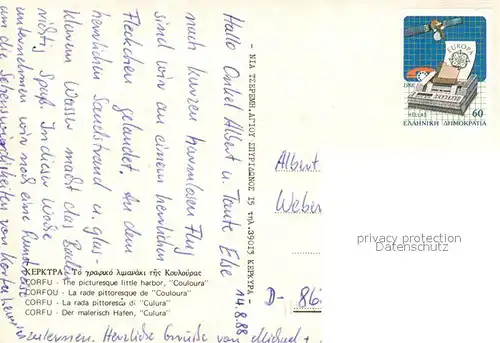 Hallo Onkel Albert u. Tante Else
nach kurzem harmlosen Flug
sind wir an einem herrlichen
Fleckchen gelandet. An dem
herrlichen Sandstrand u. glas-
klarem Wasser macht das Baden
richtig Spaß. In dieser Woche
unternehmen wir noch eine Rundreise
um die Sehenswürdigkeiten von Korfu kennen-
zulernen. Herzliche Grüße von Michael +
14.8.88
ΚΕΡΚΥΡΑ - Τό γραφικό λιμανάκι τῆς Κουλούρας
CORFU - The picturesque little harbor, "Couloura"
CORFOU - La rade pittoresque de "Couloura"
CORFU - La rada pittoresca di "Culura"
CORFU - Der malerisch Hafen, "Culura"
ΑΓΙΟΥ ΣΠΥΡΙΔΩΝΟΣ 15 τηλ. 39013 ΚΕΡΚΥΡΑ -
EUROPA
1988
HELLAS
60
ΕΛΛΗΝΙΚΗ ΔΗΜΟΚΡΑΤΙΑ
Albert
Weber
D- 86
privacy protection
Datenschutz